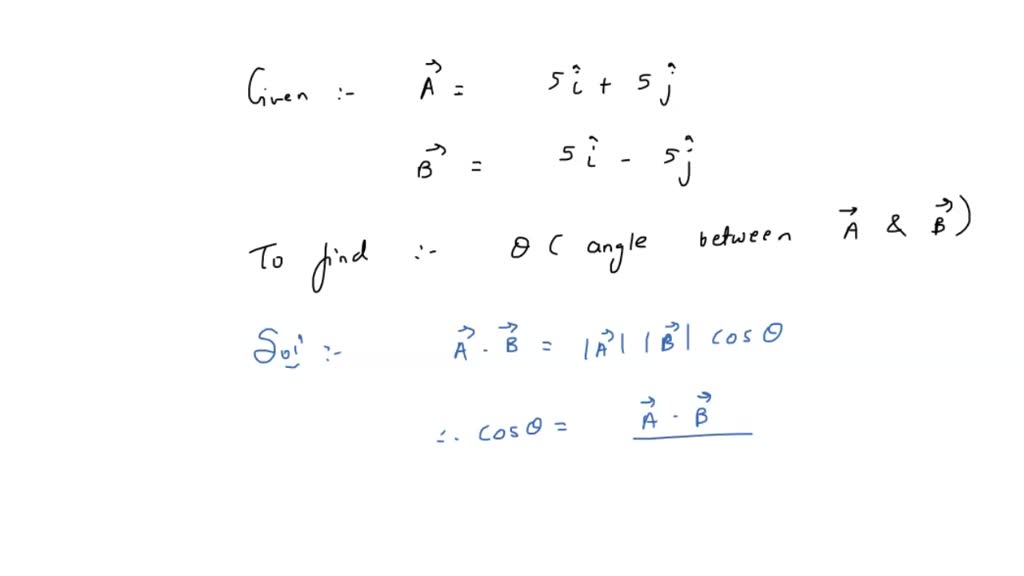 Given :- A⃗ = 5î + 5ĵ
B⃗ = 5î - 5ĵ
To find :- θ ( angle between A⃗ & B⃗ )
Sol' :- A⃗ . B⃗ = |A⃗| |B⃗| cos θ
∴ cos θ = A⃗ · B⃗